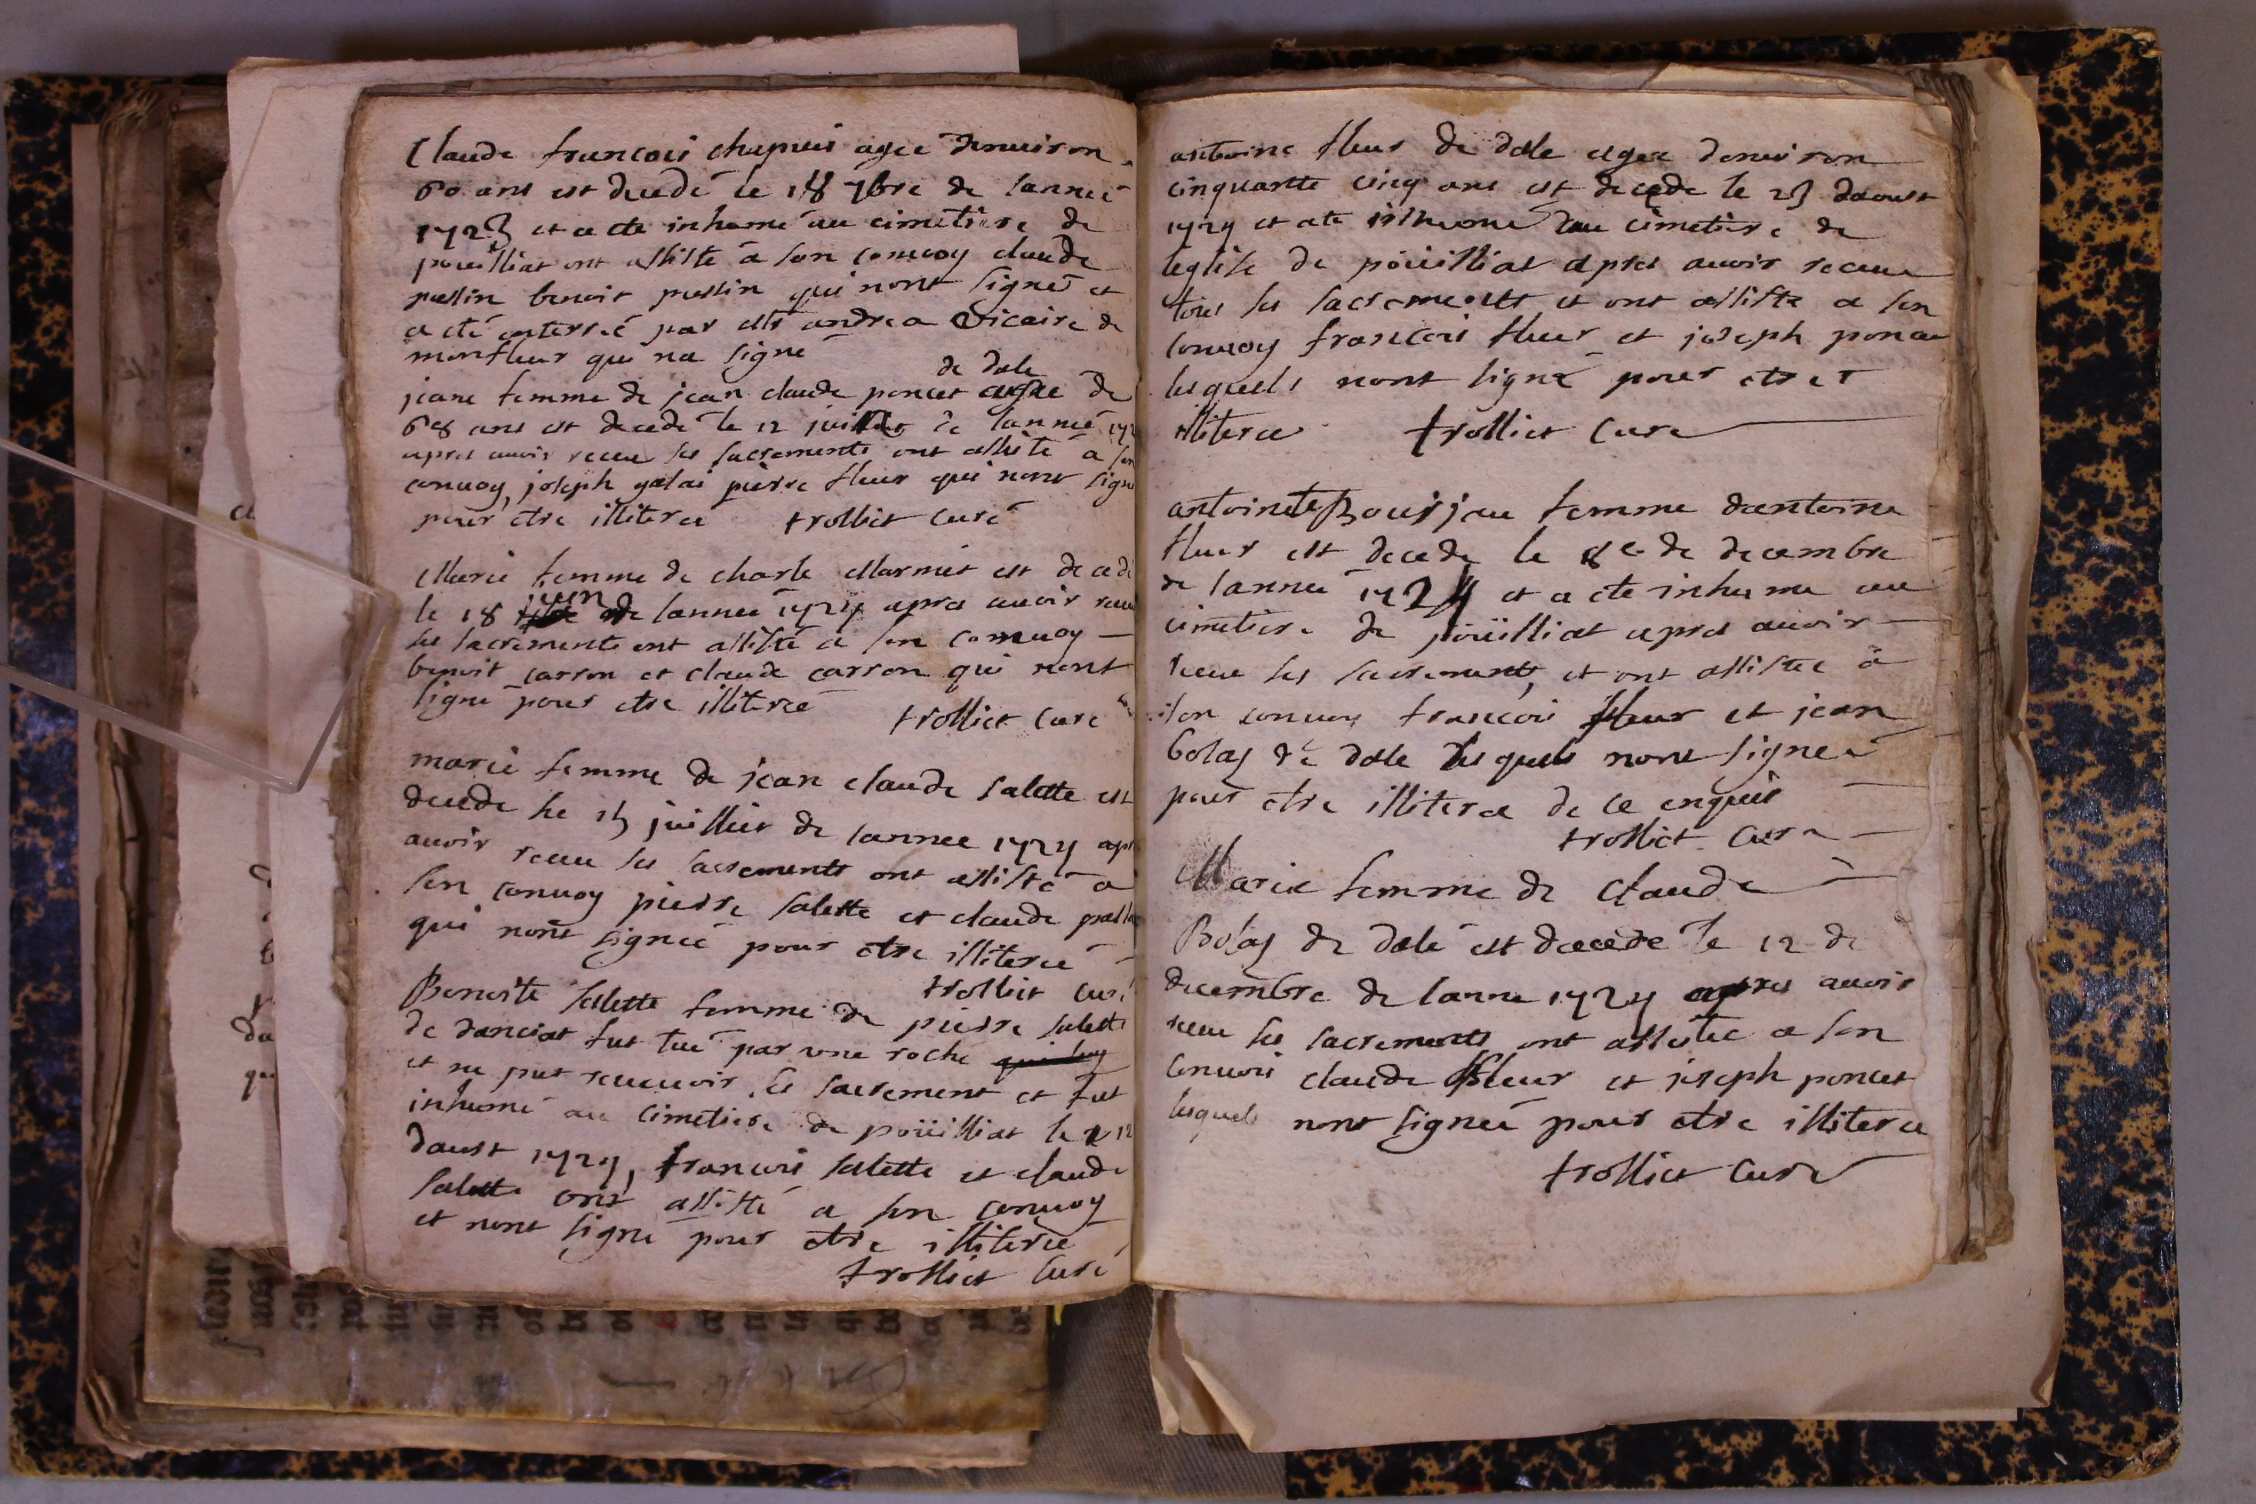 Claude francois chapuis agee denuiron
60 ans est decedé le 18 7bre de lannee
1723 et a ete inhumé au cimetiere de
pouilliat ont assisté a son conuoy claude
puslin benoit puslin qui nont signé et
a eté enterreé par mr andrea vicaire de
monfleur qui na signé
de dale
jeane femme de jean claude poncet agee de
68 ans est decedé le 12 juillet de lannee 172
apres auoir receu ses sacrements ont assité a son
conuoy joseph galai pierre fleur qui nont signé
pour etre illiteree trolliet curé
Marie femme de charle Marmet est decedé
le 18 juin de lannee 1724 apres auoir receu
ses sacrements ont assisté a son conuoy
benoit carron et claude carron qui nont
signé pour etre illiteree
trolliet curé
marie femme de jean claude salette est
decede le 15 juilliet de lannee 1724 apre
auoir receu ses sacrements ont assisté a
son conuoy pierre salette et claude
qui nont signeé pour etre illiteree
trolliet curé
Benoite salette femme de pierre salette
de danciat fut tué par une roche
et ne put receuoir ses sacrement et fut
inhumé au cimetiere de poüilliat le 12
daust 1724, francois salette et claude
salette ont assisté a son conuoy
et nont signé pour etre illiteree
trolliet curé
antoine fleur de dale agee denuiron
cinquante cinq ans est decede le 23 daoust
1724 et ate inhumé au cimetiere de
leglise de poüilliat apres auoir receue
tous ses sacrements et ont assiste a son
conuoy francois fleur et joseph
lesquels nont signé pour etres
illiteree trolliet cure
antoinete Bourjeu femme dantoine
fleur est decede le 8e de decembre
de lannee 1724 et a ete inhume au
cimetiere de poüilliat apres auoir
receue ses sacrements, et ont assistee a
son conuoy francois fleur et jean
bolas de dale lesquels nont signeé
pour etre illiteree de ce enquis
trolliet cure
Marie femme de claude
Bolas de dale est decede le 12 de
decembre de lanne 1724 apres auoir
receue ses sacrements ont assistee a son
conuois claude fleur et joseph poncet
lesquels nont signeé pour etre illiteree
trolliet cure